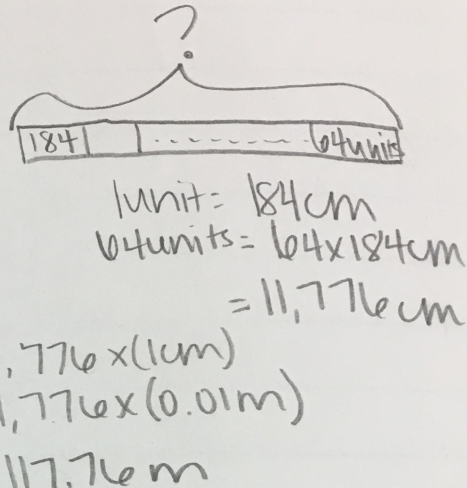 ?
184 - - - - - - - 64units
1unit = 184cm
64units = 64x184cm
= 11,776 cm
,776 x (1cm)
,776 x (0.01m)
117.76 m